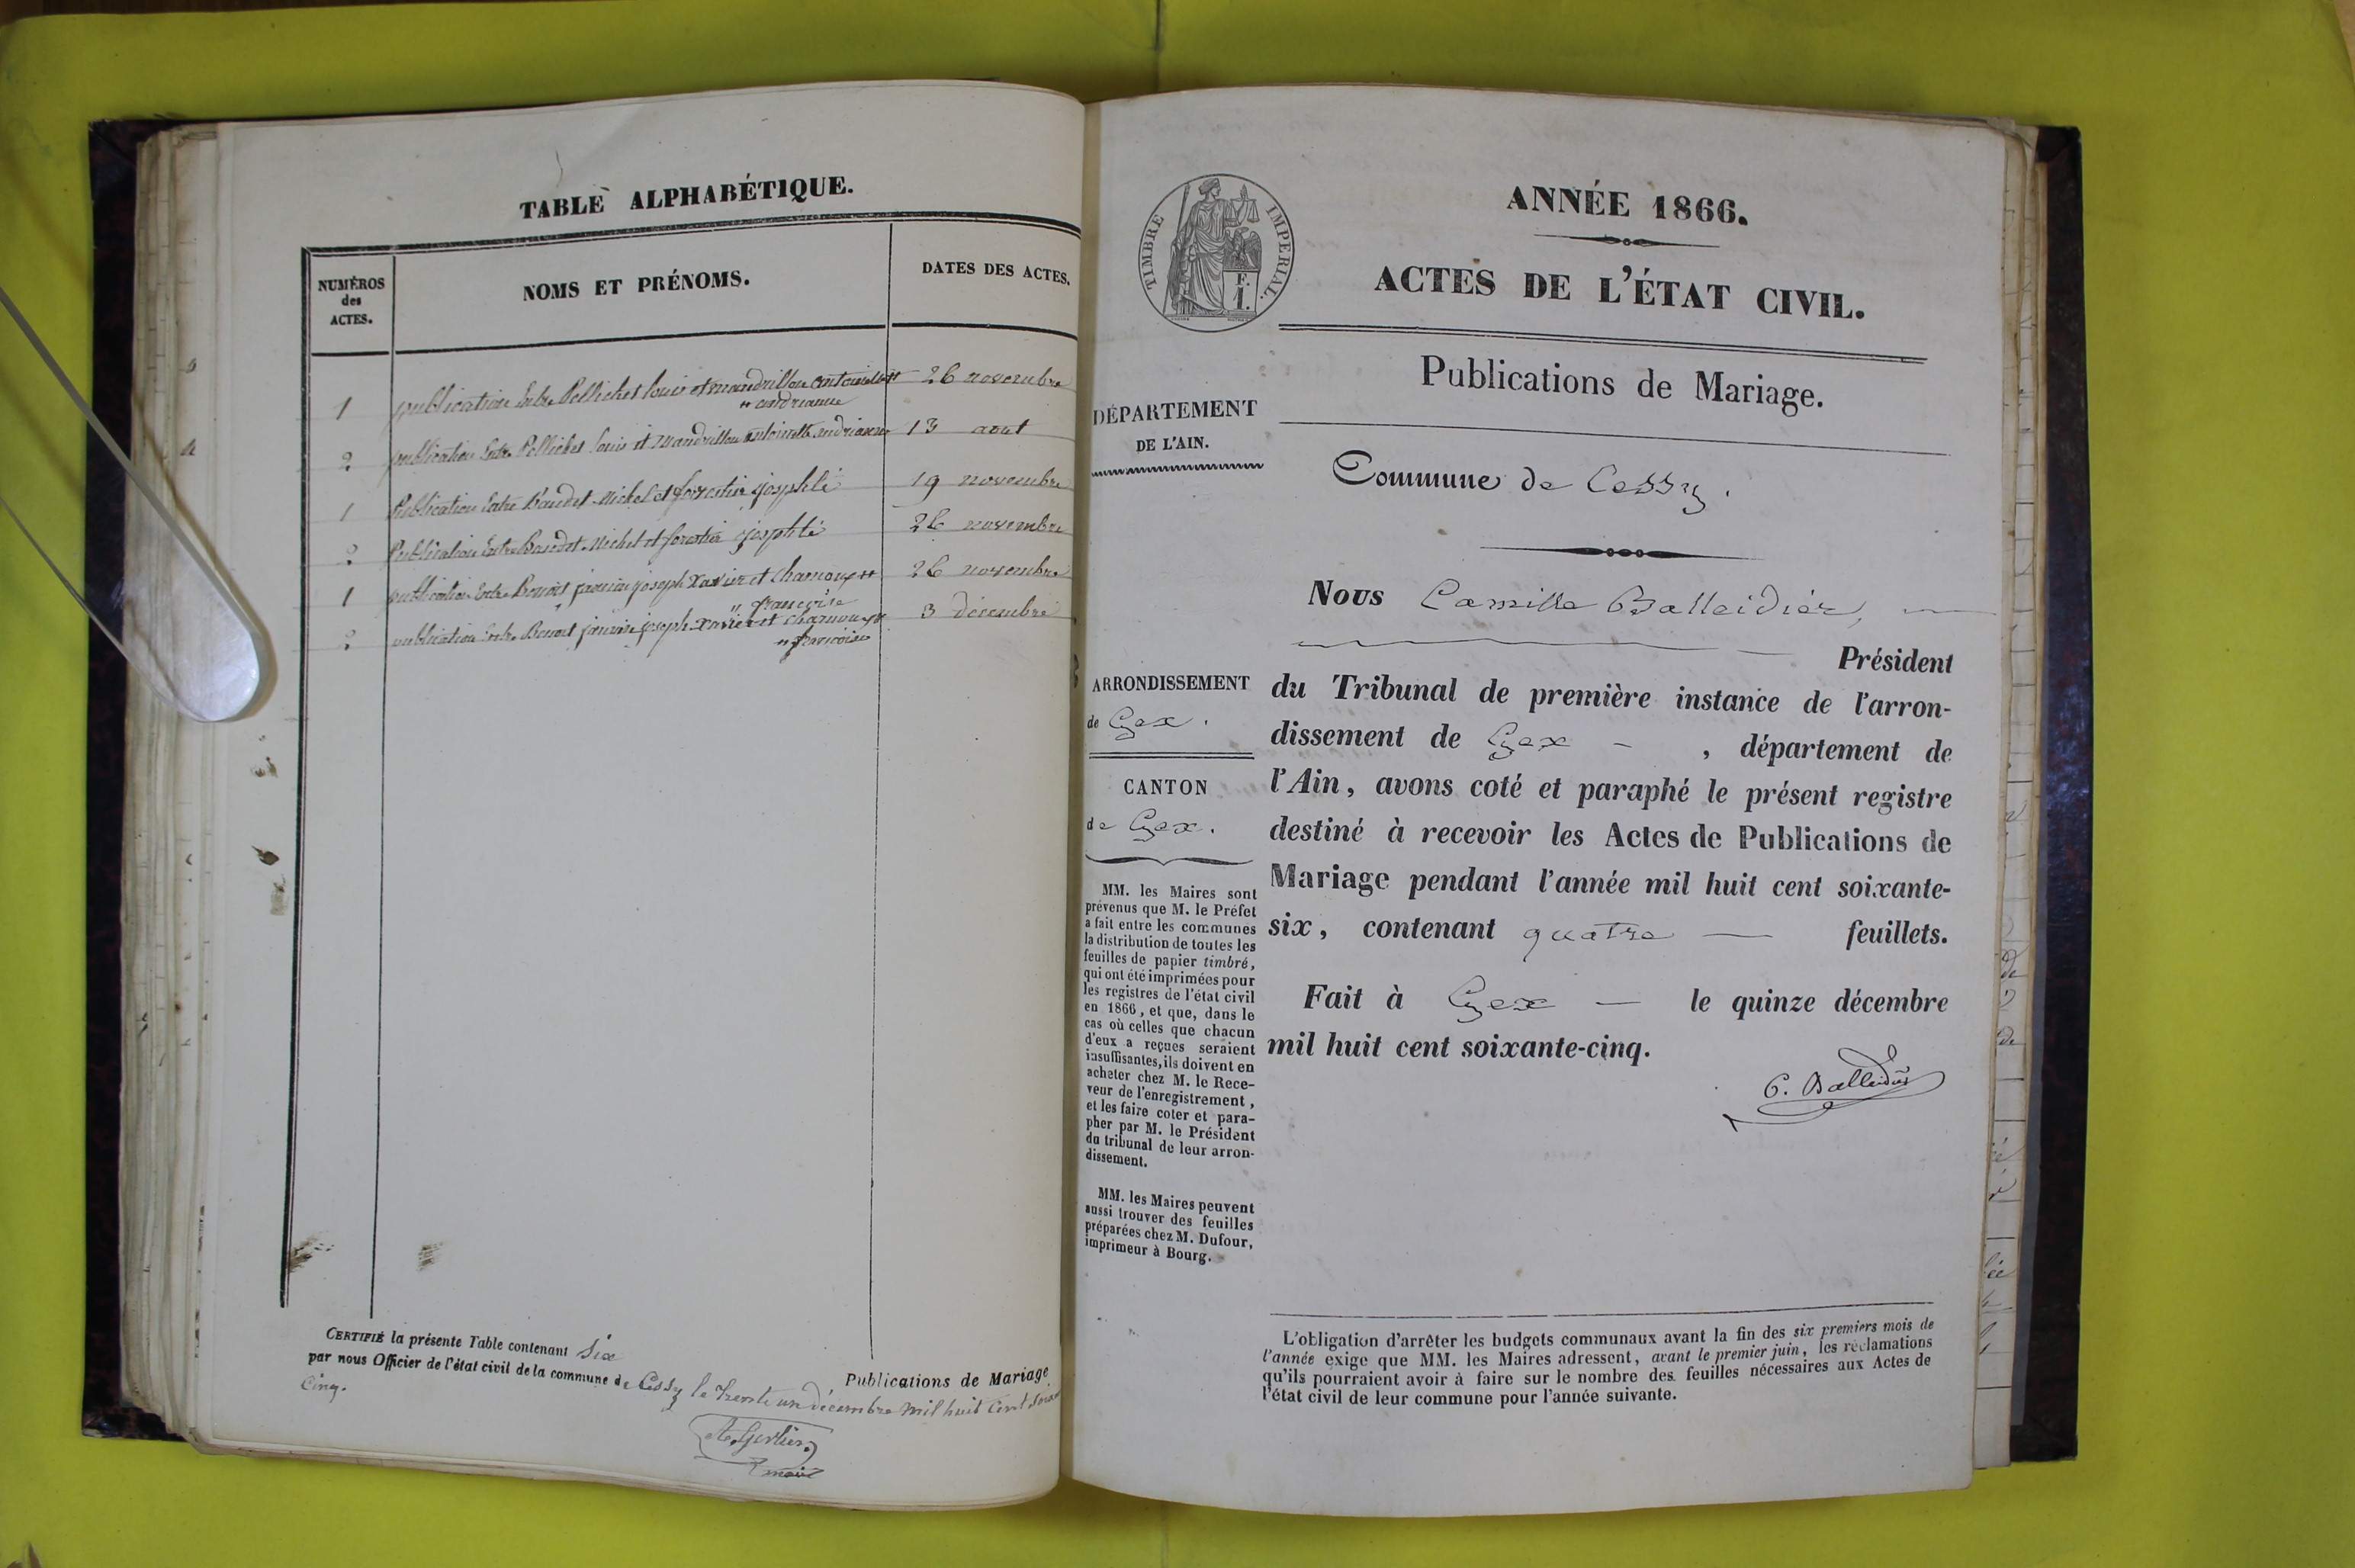 TABLE ALPHABÉTIQUE.
NUMÉROS
des
ACTES.
NOMS ET PRÉNOMS.
DATES DES ACTES.
1 publication Entre Pellichet louis et mandrillon antoinette 26 novembre
" andrianne
2 publication Entre Pellichet louis et Mandrillon antoinette andrianne 13 aout
1 Publication Entre Baudet Michel et forestier josephte 19 novembre
2 Publication Entre Baudet Michel et forestier josephte 26 novembre
1 publication Entre Benoit janvier joseph Xavier et Chamoux 26 novembre
" françoise
2 publication Entre Benoit janvier joseph xavier et Chamoux 3 décembre
" françoise
CERTIFIÉ la présente Table contenant Six Publications de Mariage
par nous Officier de l'état civil de la commune de Cessy le trente un décembre mil huit Cent Soixante
Cinq.
Gerlier
maire
TIMBRE IMPERIAL.
F.
1.
ANNÉE 1866.
ACTES DE L'ÉTAT CIVIL.
Publications de Mariage.
DÉPARTEMENT
DE L'AIN.
Commune de Cessy.
Nous Camille Balleidier,
Président
du Tribunal de première instance de l'arron-
dissement de Gex - , département de
l'Ain, avons coté et paraphé le présent registre
destiné à recevoir les Actes de Publications de
Mariage pendant l'année mil huit cent soixante-
six, contenant quatre — feuillets.
Fait à Gex — le quinze décembre
mil huit cent soixante-cinq.
C. Balleidier
ARRONDISSEMENT
de Gex.
CANTON
de Gex.
MM. les Maires sont
prévenus que M. le Préfet
a fait entre les communes
la distribution de toutes les
feuilles de papier timbré,
qui ont été imprimées pour
les registres de l'état civil
en 1866, et que, dans le
cas où celles que chacun
d'eux a reçues seraient
insuffisantes, ils doivent en
acheter chez M. le Rece-
veur de l'enregistrement,
et les faire coter et para-
pher par M. le Président
du tribunal de leur arron-
dissement.
MM. les Maires peuvent
aussi trouver des feuilles
préparées chez M. Dufour,
imprimeur à Bourg.
L'obligation d'arrêter les budgets communaux avant la fin des six premiers mois de
l'année exige que MM. les Maires adressent, avant le premier juin, les réclamations
qu'ils pourraient avoir à faire sur le nombre des feuilles nécessaires aux Actes de
l'état civil de leur commune pour l'année suivante.